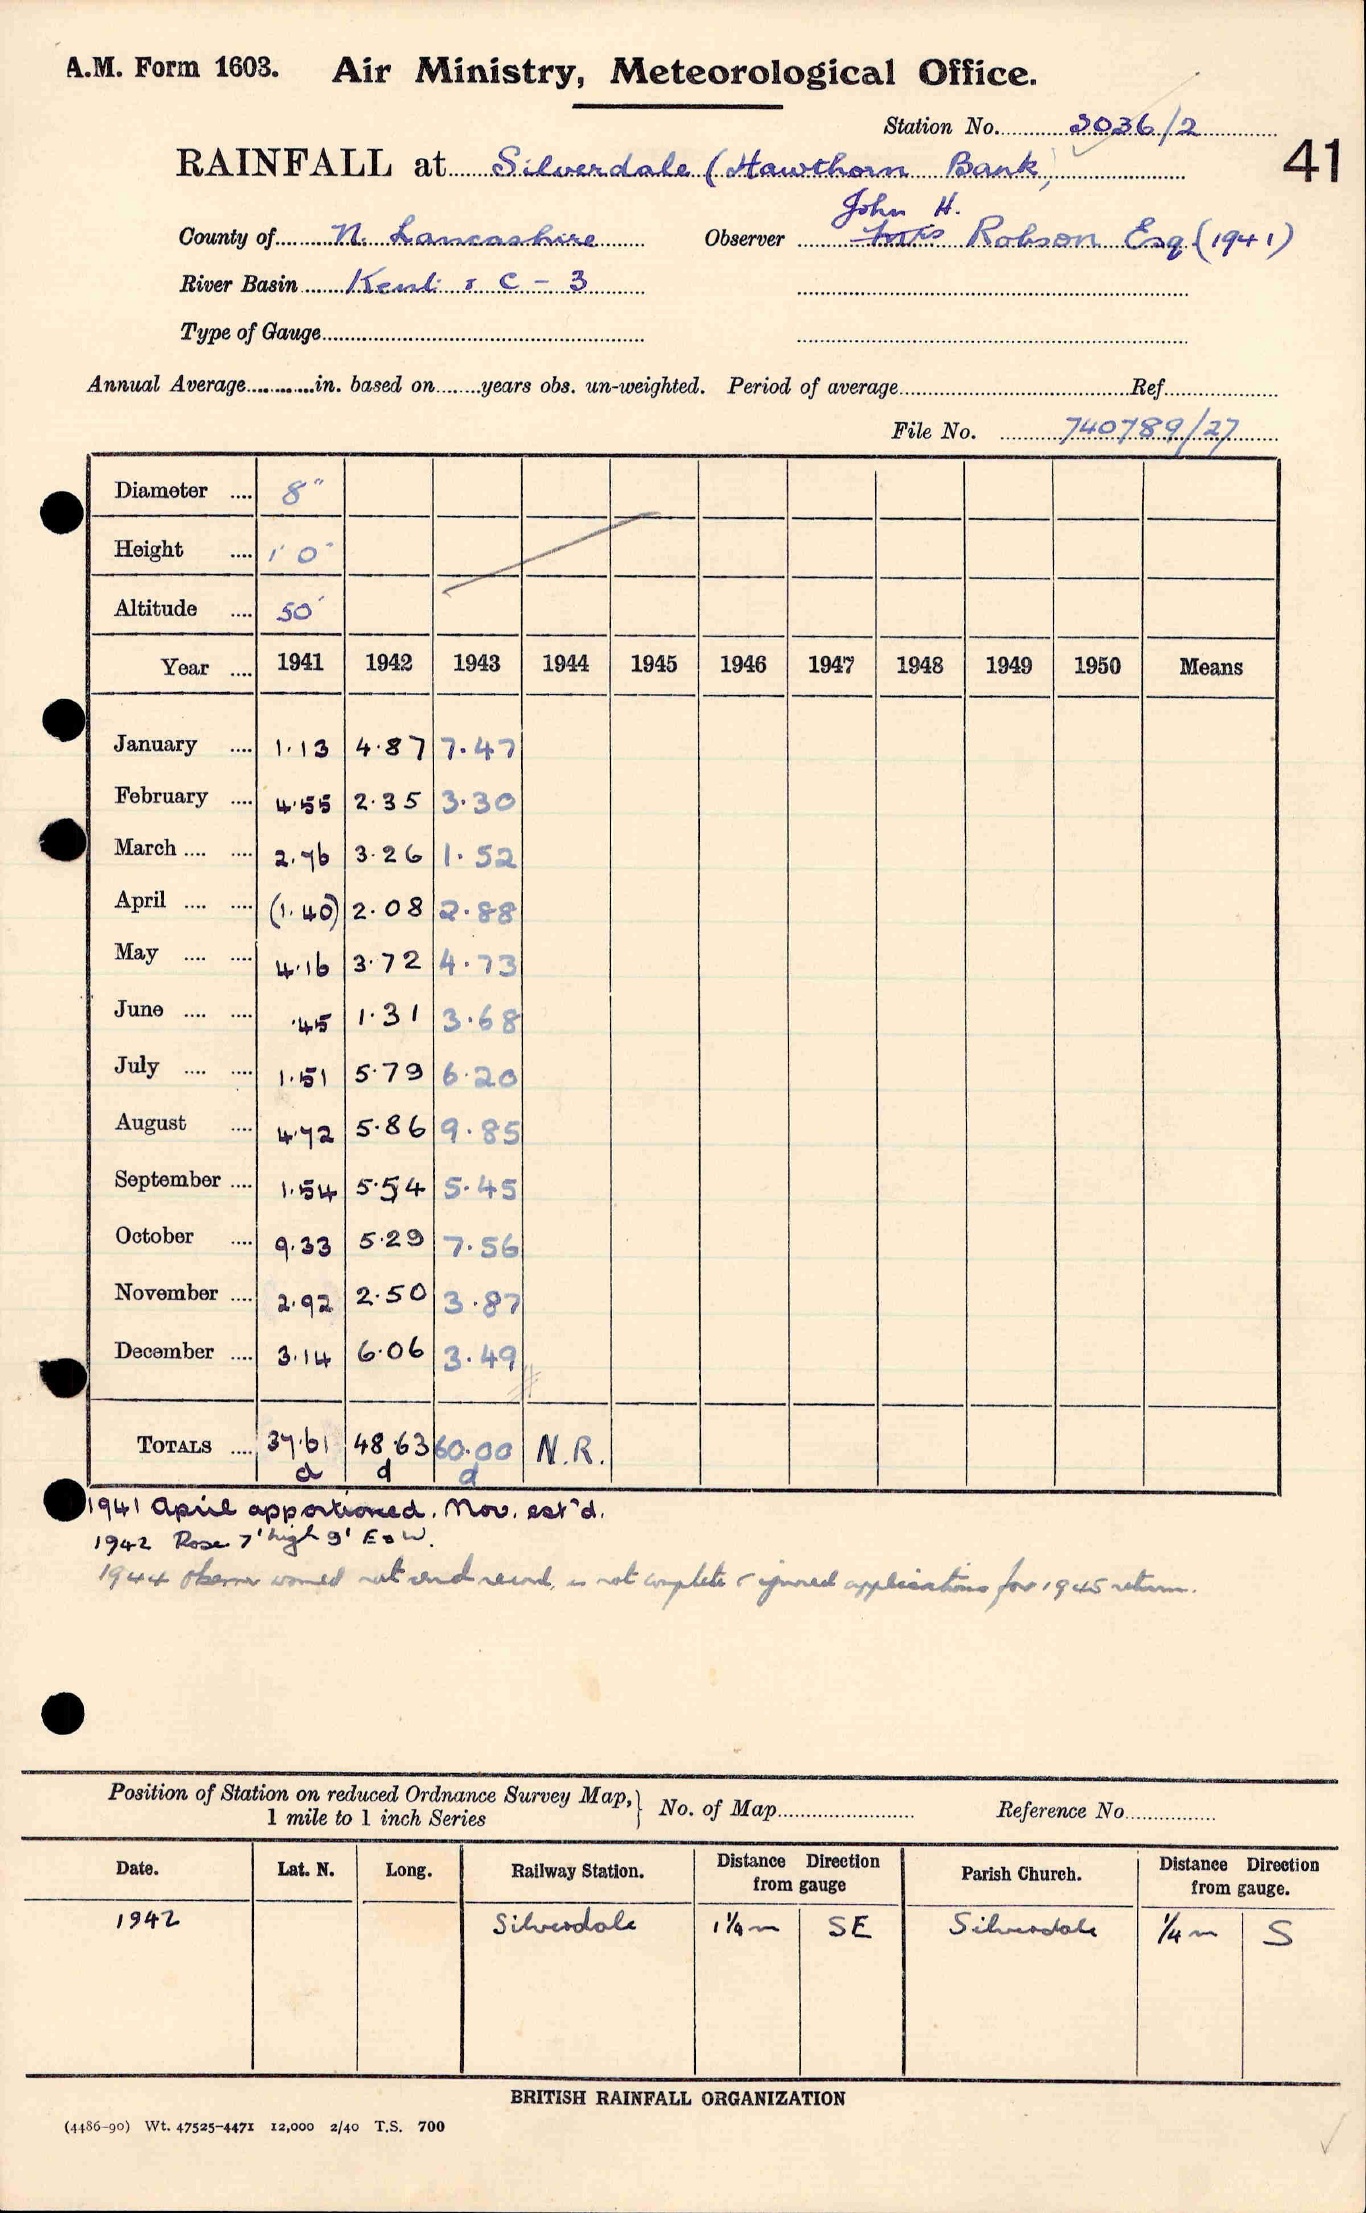 A.M. Form 1603. Air Ministry, Meteorological Office.
Station No. 3036/2
41
RAINFALL at Silverdale (Hawthorn Bank)
John H.
County of N. Lancashire Observer Robson Esq (1941)
River Basin Kent & C - 3
Type of Gauge
Annual Average in. based on years obs. un-weighted. Period of average Ref
File No. 740789/27
Diameter 8"
Height 1' 0"
Altitude 50'
Year 1941 1942 1943 1944 1945 1946 1947 1948 1949 1950 Means
January 1.13 4.87 7.47
February 4.55 2.35 3.30
March 2.76 3.26 1.52
April (1.40) 2.08 2.88
May 4.16 3.72 4.73
June .45 1.31 3.68
July 1.51 5.79 6.20
August 4.72 5.86 9.85
September 1.54 5.54 5.45
October 9.33 5.29 7.56
November 2.92 2.50 3.87
December 3.14 6.06 3.49
TOTALS 37.61 48.63 60.00 N.R.
d d d
1941 April apportioned. Nov. est'd.
1942 Rose 7' high 9' E & W.
1944 Observer would not send record, is not complete & ignored applications for 1945 return.
Position of Station on reduced Ordnance Survey Map, 1 mile to 1 inch Series } No. of Map Reference No.
Date. Lat. N. Long. Railway Station. Distance Direction from gauge Parish Church. Distance Direction from gauge.
1942 Silverdale 1¼ m SE Silverdale ¼ m S
BRITISH RAINFALL ORGANIZATION
(4486-90) Wt. 47525-4471 12,000 2/40 T.S. 700